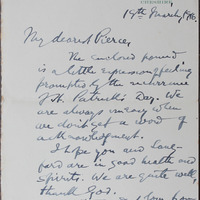 17th March, 1916.
My dearest Pierce,
The enclosed pound
is a little expression of feeling
prompted by the recurrence
of St. Patrick's Day. We
are always uneasy when
we don't get a word of
acknowledgment.
I hope you and Lang-
ford are in good health and
spirits. We are quite well,
thank God.